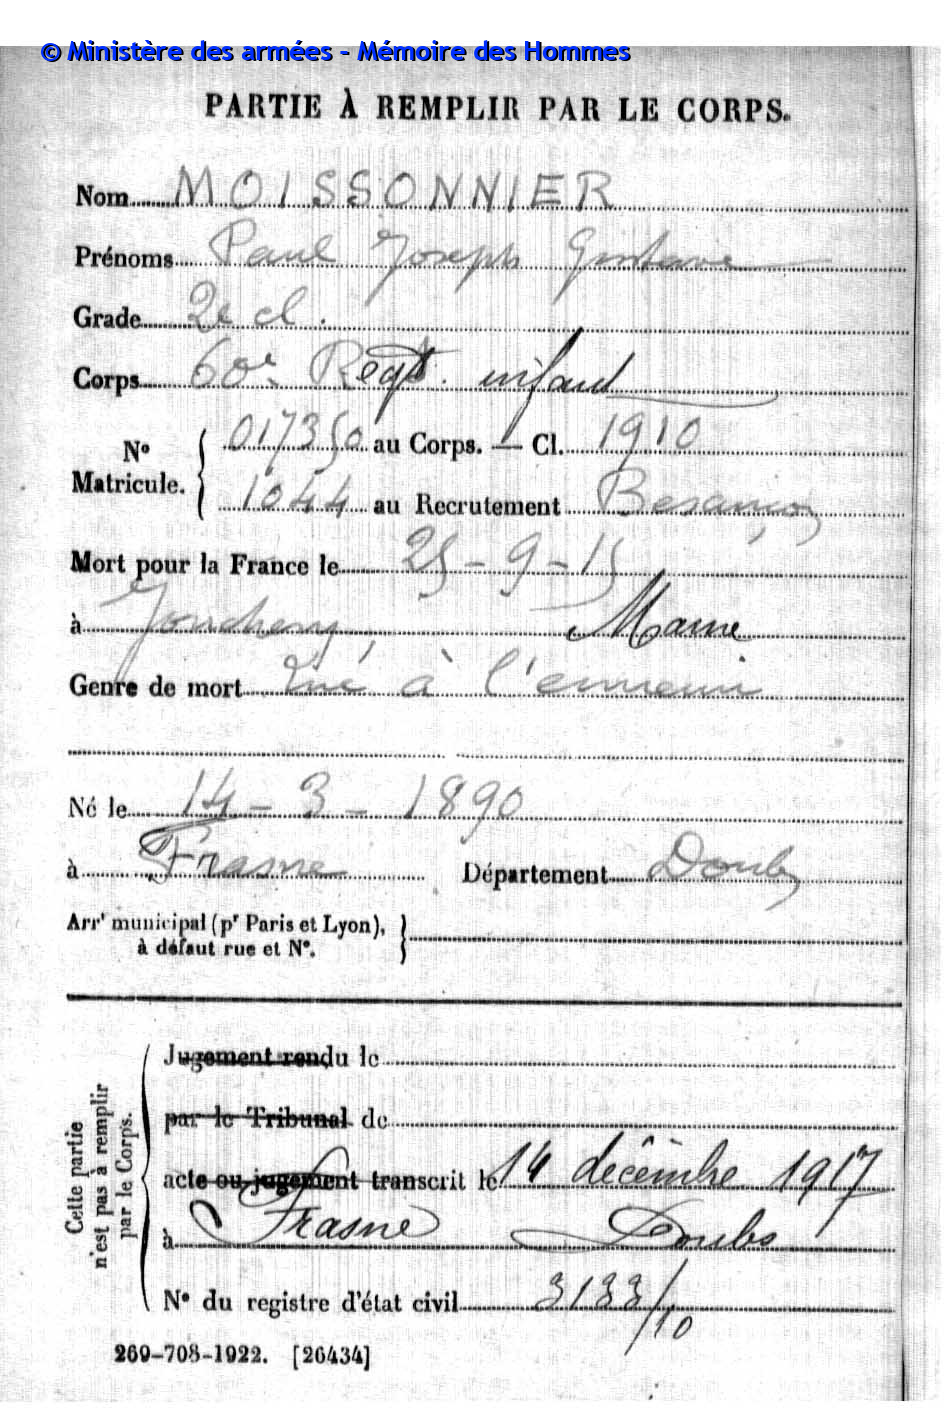 © Ministère des armées - Mémoire des Hommes
PARTIE À REMPLIR PAR LE CORPS.
Nom MOISSONNIER
Prénoms Paul Joseph Gustave
Grade 2e cl.
Corps 60e Regt. infant
Nº 017350 au Corps. — Cl. 1910
Matricule. 1044 au Recrutement Besançon
Mort pour la France le 25-9-15
à Jonchery, Marne
Genre de mort Tué à l'ennemi
Né le 14-3-1890
à Frasne Département Doubs
Arrt municipal (pr Paris et Lyon),
à défaut rue et Nº.
Cette partie
n'est pas à remplir
par le Corps.
Jugement rendu le
par le Tribunal de
acte ou jugement transcrit le 14 décembre 1917
à Frasne Doubs
Nº du registre d'état civil 3133/10
269-708-1922. [26434]